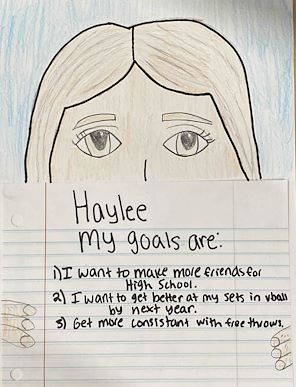 Haylee
My goals are:
1) I want to make more friends for
High School.
2) I want to get better at my sets in vball
by next year.
3) Get more consistant with free throws.